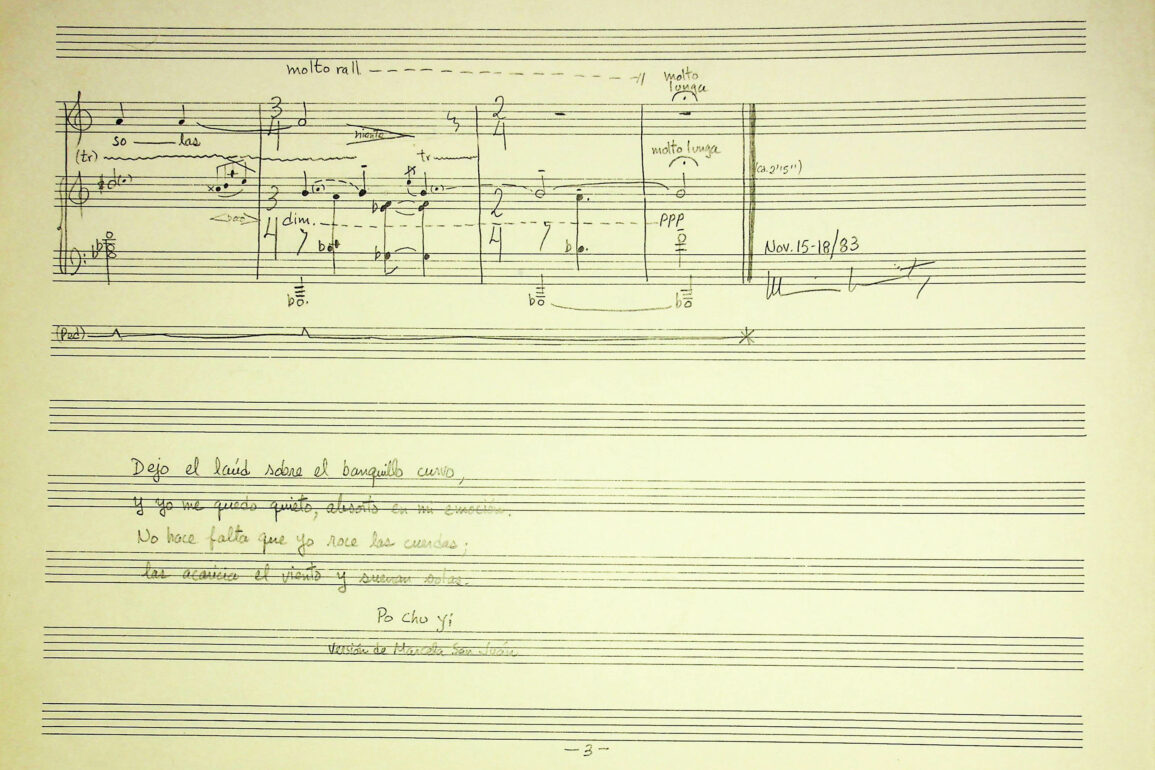 molto rall
molto
lunga
3
4
2
4
so las
niente
(tr)
tr
molto lunga
(ca. 2'15")
3
4
dim.
2
4
ppp
Nov. 15-18/83
(Ped)
Dejo el laúd sobre el banquillo curvo,
Y yo me quedo quieto, absorto en mi emoción.
No hace falta que yo roce las cuerdas;
las acaricia el viento y suenan solas.
Po Chu Yi
Versión de Marcela San Juán
-3-